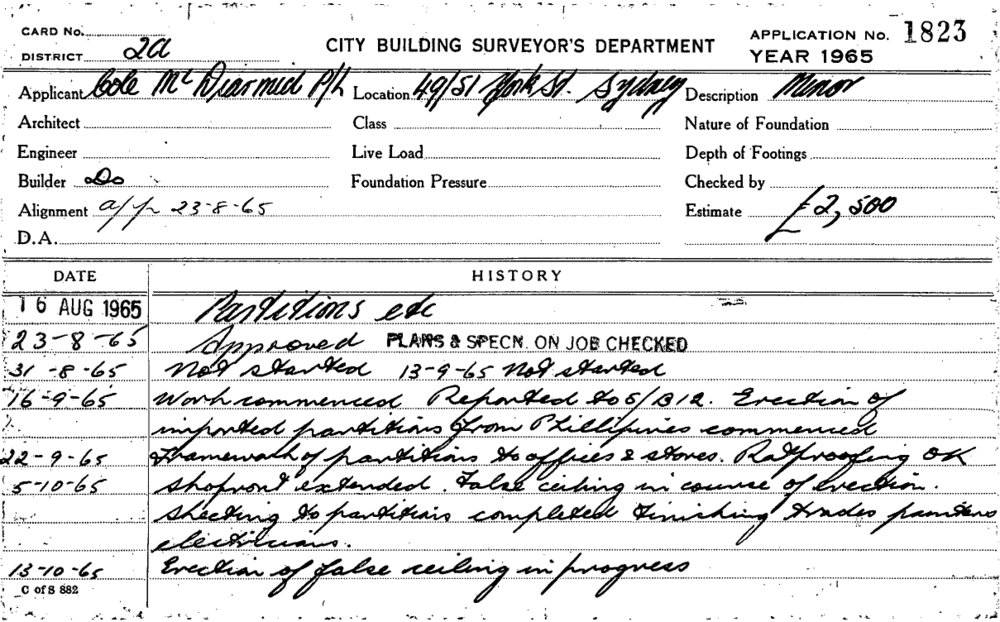 CARD No.
DISTRICT 2a
CITY BUILDING SURVEYOR'S DEPARTMENT
APPLICATION No. 1823
YEAR 1965
Applicant Cole McDiarmid P/L Location 49/51 York St. Sydney Description Minor
Architect Class Nature of Foundation
Engineer Live Load Depth of Footings
Builder Do Foundation Pressure Checked by
Alignment 23-8-65 Estimate £2,500
D.A.
DATE HISTORY
16 AUG 1965 Partitions etc
23-8-65 Approved PLANS & SPECN. ON JOB CHECKED
31-8-65 Not started 13-9-65 Not started
16-9-65 Work commenced Reported to S/B12. Erection of
imported partitions from Phillipines commenced
22-9-65 Framework of partitions to offices & stores. Ratproofing OK
5-10-65 Shopfront extended. False ceiling in course of erection.
Sheeting to partitions completed Finishing trades painters
electricians.
13-10-65 Erection of false ceiling in progress
C of S 882